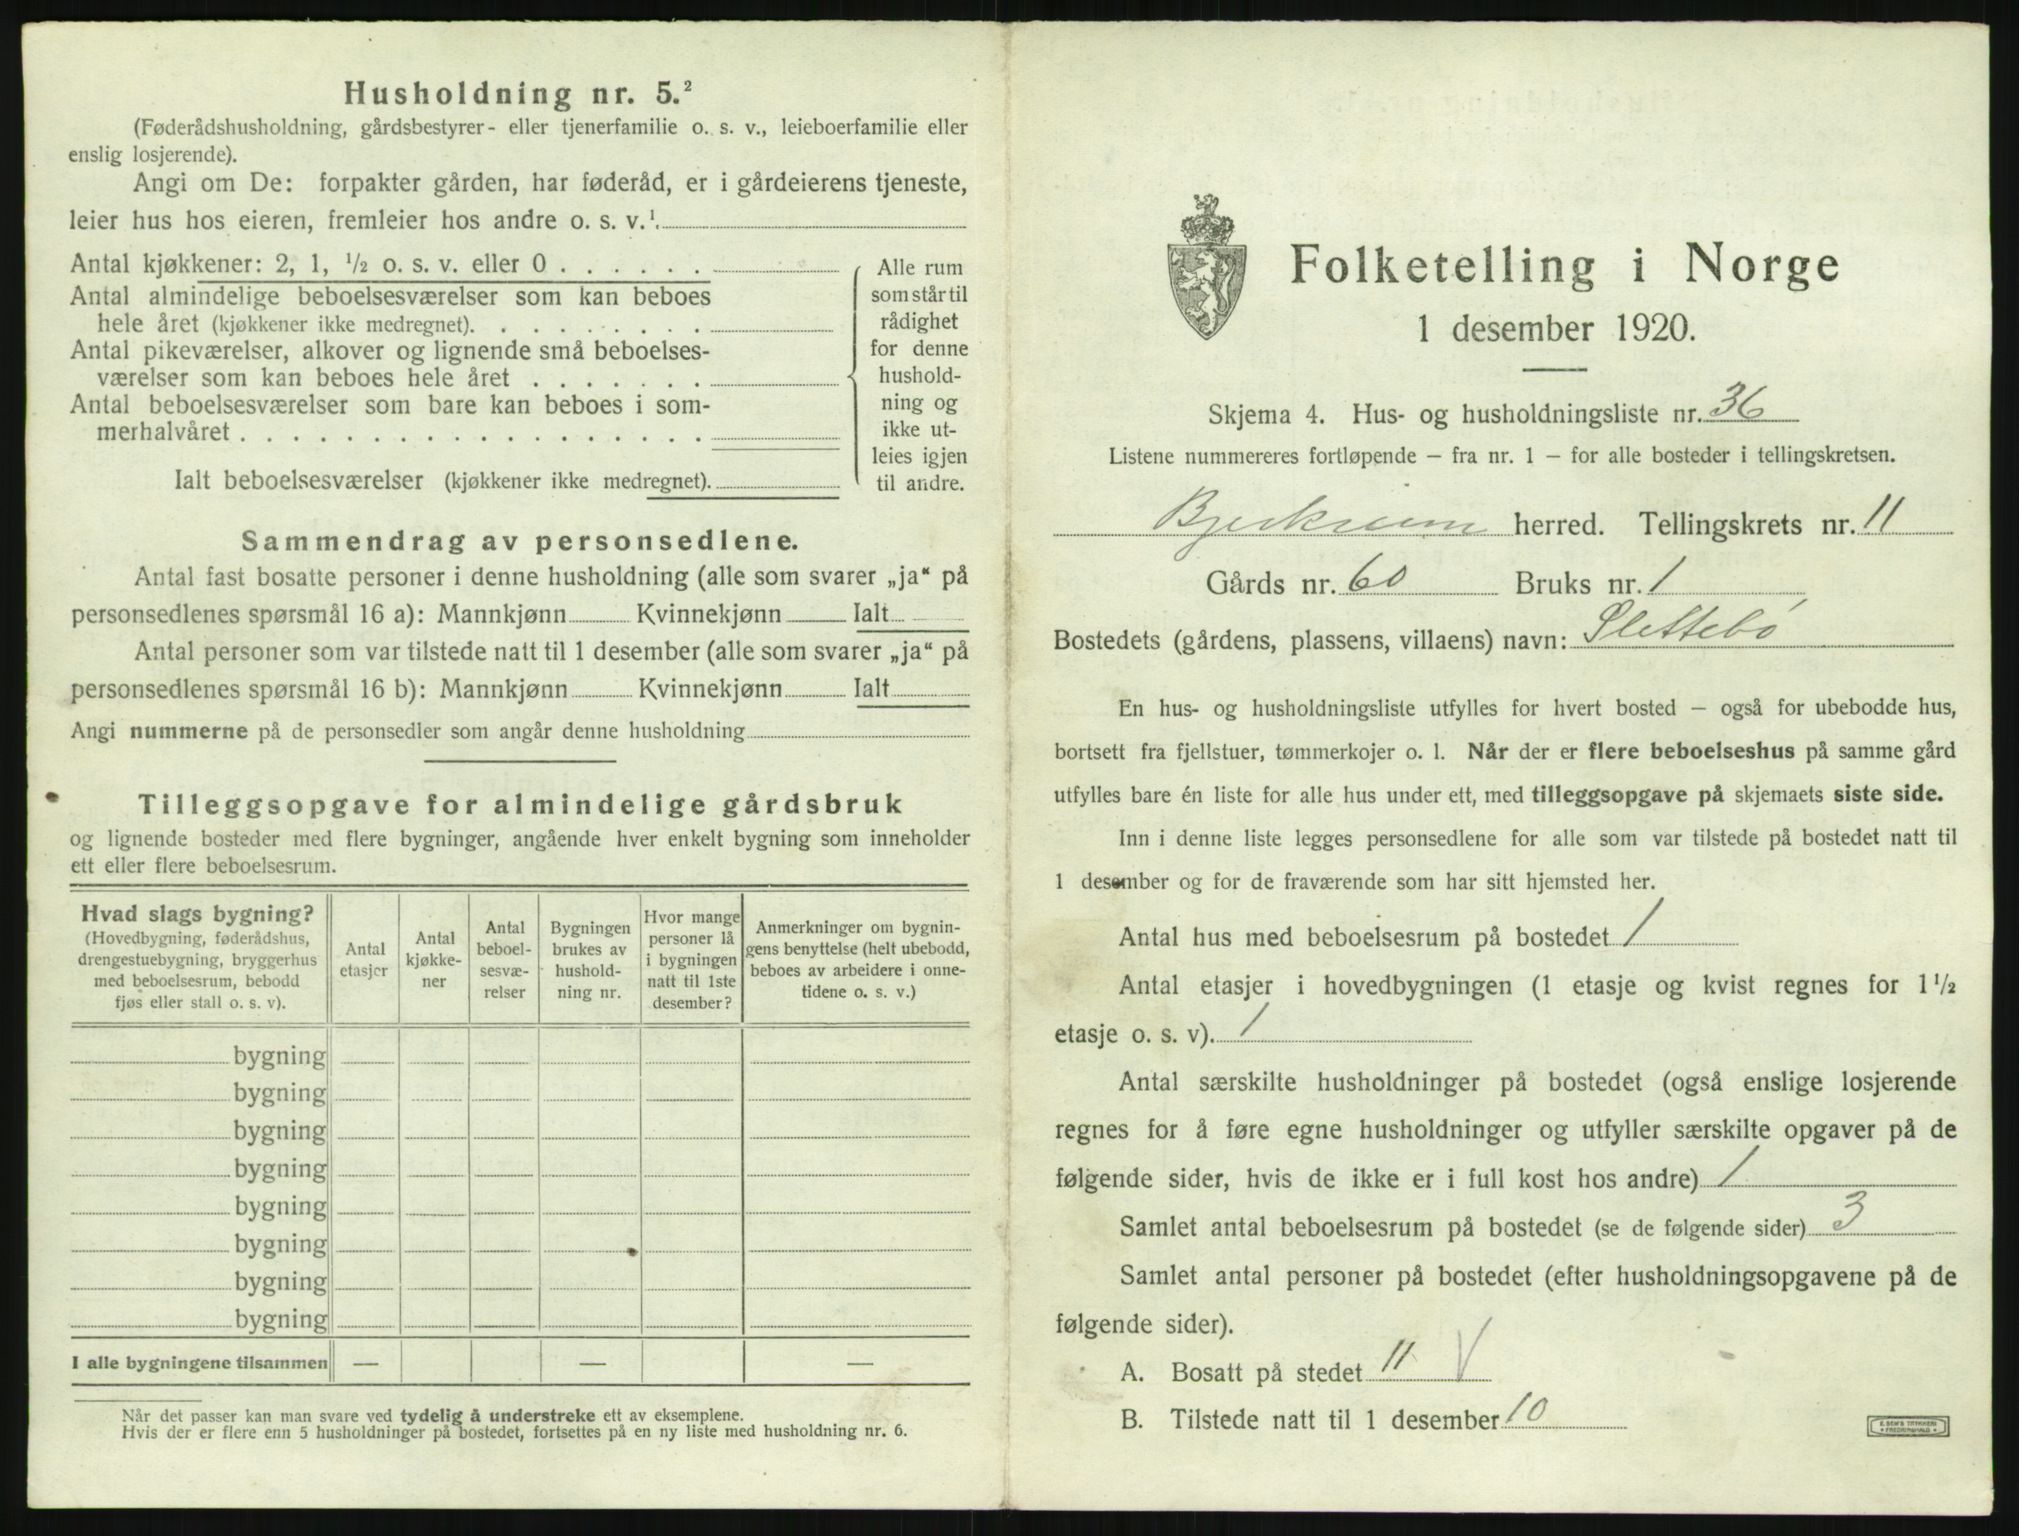 Husholdning nr. 5.²
(Føderådshusholdning, gårdsbestyrer- eller tjenerfamilie o. s. v., leieboerfamilie eller
enslig losjerende).
Angi om De: forpakter gården, har føderåd, er i gårdeierens tjeneste,
leier hus hos eieren, fremleier hos andre o. s. v.¹.
Antal kjøkkener: 2, 1, ½ o. s. v. eller 0 . . . . . .
Antal almindelige beboelsesværelser som kan beboes
hele året (kjøkkener ikke medregnet). . . . . . . . .
Antal pikeværelser, alkover og lignende små beboelses-
værelser som kan beboes hele året . . . . . . .
Antal beboelsesværelser som bare kan beboes i som-
merhalvåret . . . . . . . . . . . . . . . . . .
Ialt beboelsesværelser (kjøkkener ikke medregnet).
Alle rum
som står til
rådighet
for denne
hushold-
ning og
ikke ut-
leies igjen
til andre.
Sammendrag av personsedlene.
Antal fast bosatte personer i denne husholdning (alle som svarer „ja“ på
personsedlenes spørsmål 16 a): Mannkjønn Kvinnekjønn Ialt
Antal personer som var tilstede natt til 1 desember (alle som svarer „ja“ på
personsedlenes spørsmål 16 b): Mannkjønn Kvinnekjønn Ialt
Angi nummerne på de personsedler som angår denne husholdning
Tilleggsopgave for almindelige gårdsbruk
og lignende bosteder med flere bygninger, angående hver enkelt bygning som inneholder
ett eller flere beboelsesrum.
Hvad slags bygning?
(Hovedbygning, føderådshus,
drengestuebygning, bryggerhus
med beboelsesrum, bebodd
fjøs eller stall o. s. v).
Antal
etasjer
Antal
kjøkke-
ner
Antal
beboel-
sesvæ-
relser
Bygningen
brukes av
hushold-
ning nr.
Hvor mange
personer lå
i bygningen
natt til 1ste
desember?
Anmerkninger om bygnin-
gens benyttelse (helt ubebodd,
beboes av arbeidere i onne-
tidene o. s. v.)
bygning
bygning
bygning
bygning
bygning
bygning
bygning
bygning
I alle bygningene tilsammen — — —
Når det passer kan man svare ved tydelig å understreke ett av eksemplene.
Hvis der er flere enn 5 husholdninger på bostedet, fortsettes på en ny liste med husholdning nr. 6.
Folketelling i Norge
1 desember 1920.
Skjema 4. Hus- og husholdningsliste nr. 36
Listene nummereres fortløpende – fra nr. 1 – for alle bosteder i tellingskretsen.
Bjerkreim herred. Tellingskrets nr. 11
Gårds nr. 60 Bruks nr. 1
Bostedets (gårdens, plassens, villaens) navn: Slettebø
En hus- og husholdningsliste utfylles for hvert bosted – også for ubebodde hus,
bortsett fra fjellstuer, tømmerkojer o. l. Når der er flere beboelseshus på samme gård
utfylles bare én liste for alle hus under ett, med tilleggsopgave på skjemaets siste side.
Inn i denne liste legges personsedlene for alle som var tilstede på bostedet natt til
1 desember og for de fraværende som har sitt hjemsted her.
Antal hus med beboelsesrum på bostedet 1
Antal etasjer i hovedbygningen (1 etasje og kvist regnes for 1½
etasje o. s. v). 1
Antal særskilte husholdninger på bostedet (også enslige losjerende
regnes for å føre egne husholdninger og utfyller særskilte opgaver på de
følgende sider, hvis de ikke er i full kost hos andre) 1
Samlet antal beboelsesrum på bostedet (se de følgende sider) 3
Samlet antal personer på bostedet (efter husholdningsopgavene på de
følgende sider).
A. Bosatt på stedet 11 V
B. Tilstede natt til 1 desember 10
E. SEM'S TRYKKERI
FREDRIKSHALD